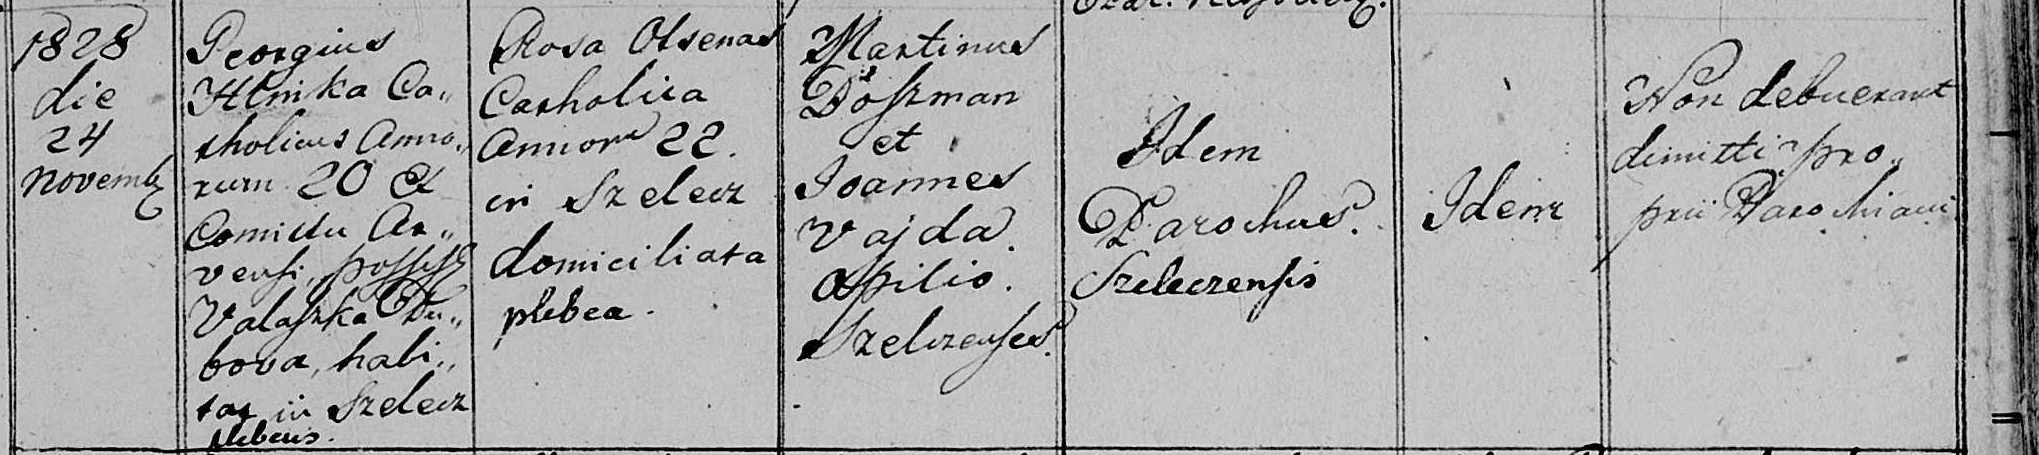 1828
die
24
Novemb
Georgius
Hlnika Ca„
tholicus Anno„
rum 20 Ex
Comittu Ar„
vensi, possess
Valaszka Du„
bova, habi„
tat in Szelecz
plebeus.
Rosa Otsenas
Catholica
Annoru 22.
in Szelecz
domiciliata
plebea.
Martinus
Doszman
et
Joannes
Vajda.
opilio.
Szelezenses.
Idem
Parochus.
Szeleczensis
Idem
Non debuerant
dimitti pro„
prii Parochiani